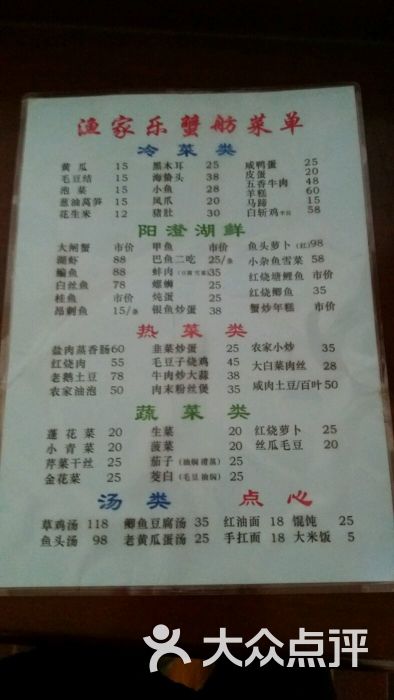 渔家乐蟹舫菜单
冷菜类
黄瓜 15 黑木耳 25 咸鸭蛋 25
毛豆结 15 海蛰头 38 皮蛋 20
泡菜 15 小鱼 28 五香牛肉 48
葱油莴笋 15 凤爪 20 羊糕 60
花生米 12 猪肚 30 马蹄 15
白斩鸡 58
阳澄湖鲜
大闸蟹 市价 甲鱼 市价 鱼头萝卜(红)98
湖虾 88 巴鱼二吃 25/条 小杂鱼雪菜 58
鳊鱼 88 蚌肉 35 红烧塘鲤鱼 市价
白丝鱼 78 螺蛳 25 红烧鲫鱼 35
桂鱼 市价 炖蛋 20 蟹炒年糕 市价
昂刺鱼 15/条 银鱼炒蛋 38
热菜类
盐肉蒸香肠 60 韭菜炒蛋 25 农家小炒 35
红烧肉 55 毛豆子烧鸡 45 大白菜肉丝 28
老鹅土豆 78 牛肉炒大蒜 38 咸肉土豆/百叶 50
农家油泡 50 肉末粉丝煲 35
蔬菜类
蓬花菜 20 生菜 20 红烧萝卜 25
小青菜 20 菠菜 20 丝瓜毛豆 20
芹菜干丝 25 茄子(油焖 清蒸) 25
金花菜 25 茭白(毛豆 油焖) 25
汤类 点心
草鸡汤 118 鲫鱼豆腐汤 35 红油面 18 馄饨 25
鱼头汤 98 老黄瓜蛋汤 25 手扛面 18 大米饭 5
大众点评